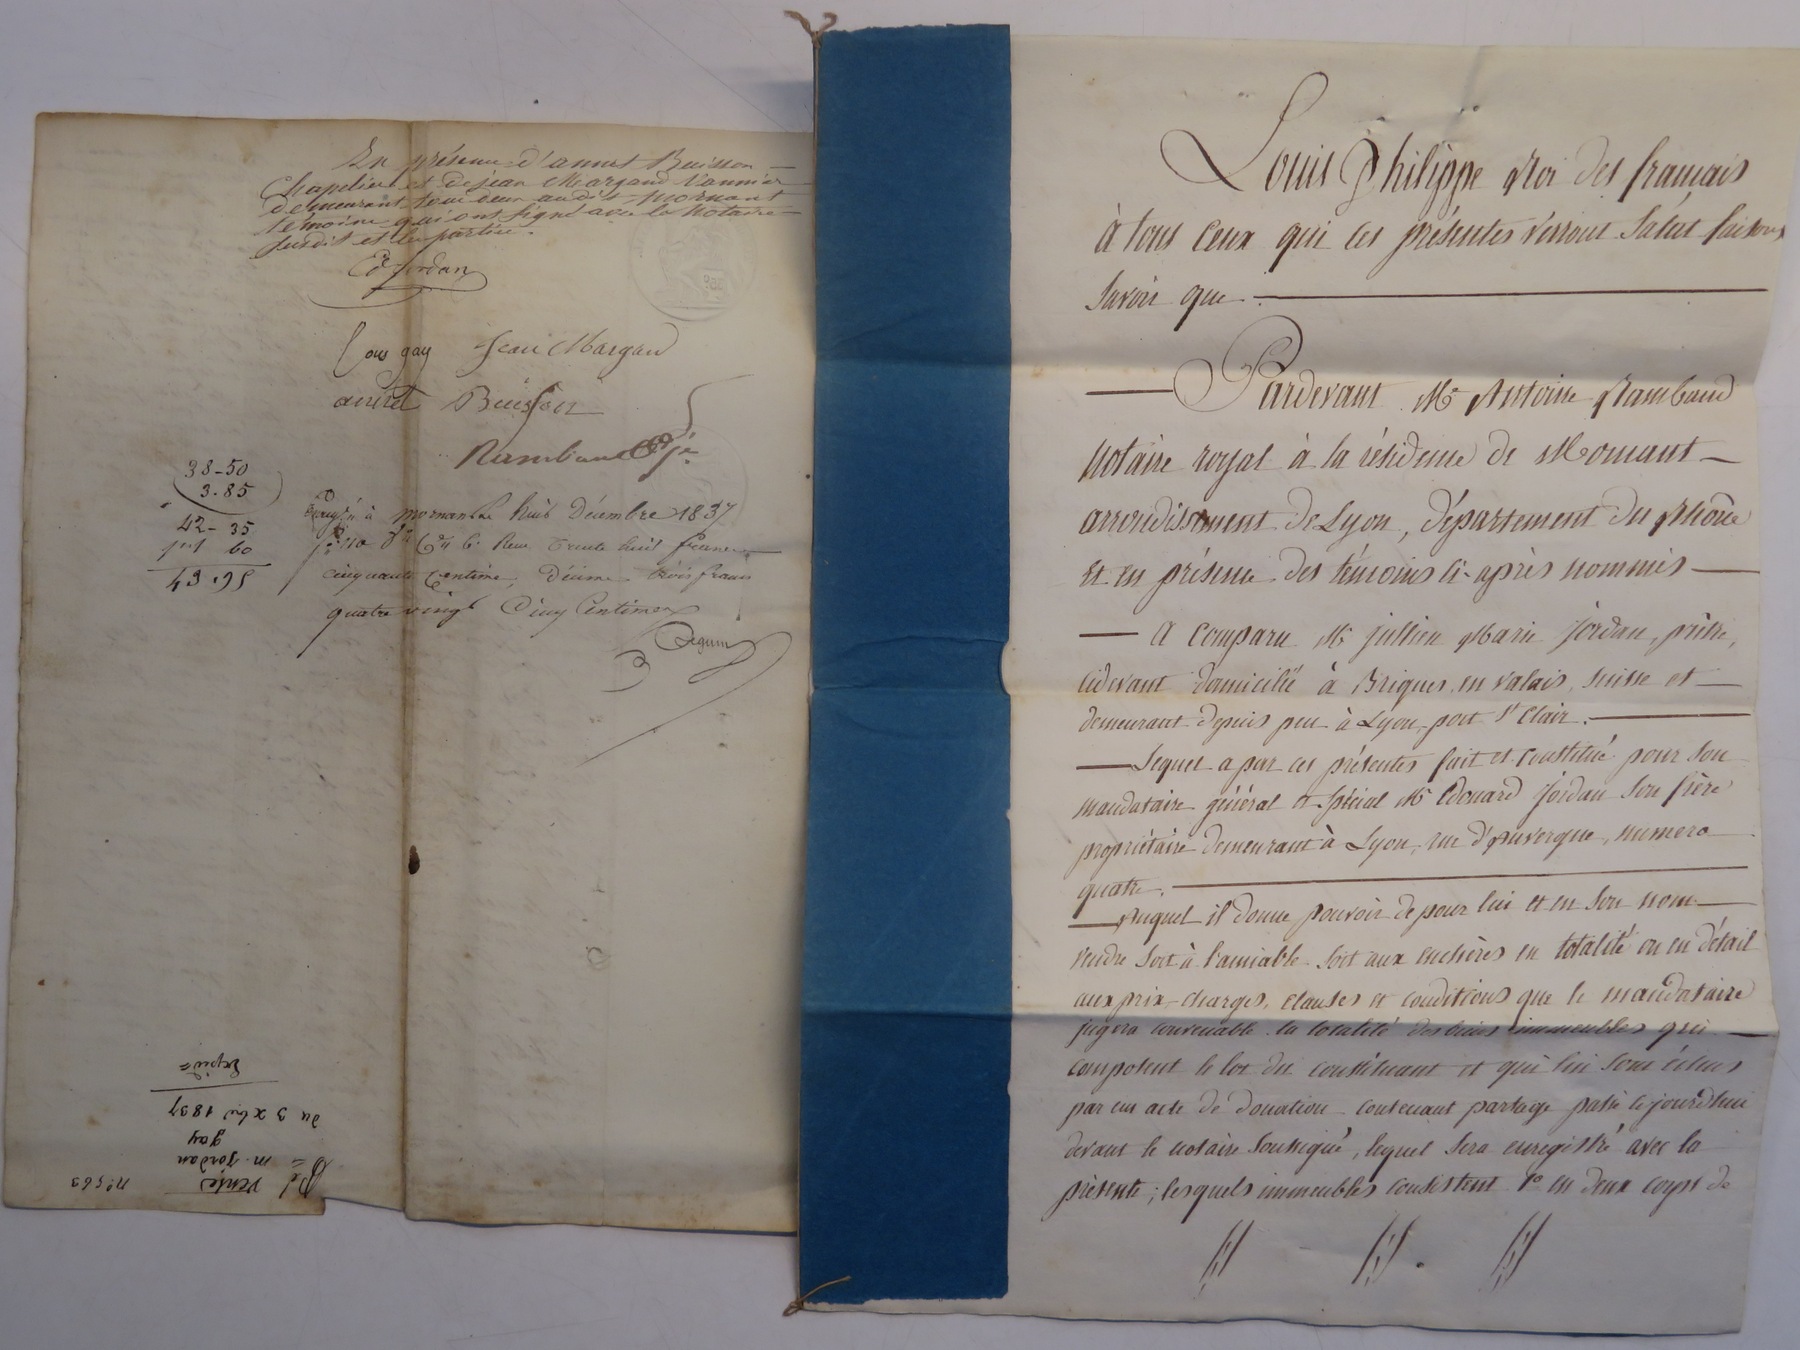 En présence d'annet Buisson
Chapelier et de jean Margand Vannier
demeurant tous deux audit mornant
témoins qui ont signé avec le Notaire
susdit et les parties.
Ed Jordan
Louis gay Jean Margand
annet Buisson
Rambaud
38-50
3.85
42-35
60
43.95
Enregistré à mornant le huit Décembre 1837
Reçu trente huit francs
cinquante Centimes, Décime trois francs
quatre vingt Cinq Centimes
Seguin
nº 563
vente
m. Jordan
gay
du 3 xbre 1837
Expiée
Louis Philippe Roi des français
à tous ceux qui ces présentes verront Salut faisons
Savoir que
Pardevant Me Antoine Rambaud
Notaire royal à la résidence de Mornant
arrondissement de Lyon, département du Rhône
Et en présence des témoins ci-après nommés
A Comparu Mr jullien Marie jordan, prêtre,
cidevant domicilié à Brigues en valais, suisse et
demeurant depuis peu à Lyon, port St Clair.
Lequel a par ces présentes fait et constitué pour son
mandataire général et spécial Mr Edouard jordan son frère
propriétaire demeurant à Lyon, rue d'Auvergne, numero
quatre.
Auquel il donne pouvoir de pour lui et en son nom
vendre soit à l'amiable soit aux enchères en totalité ou en détail
aux prix, charges, clauses et conditions que le mandataire
jugera convenable la totalité des biens immeubles qui
composent le lot du constituant et qui lui sont échus
par un acte de donation contenant partage passé cejourdhui
devant le notaire soussigné, lequel sera enregistré avec la
présente; lesquels immeubles consistent 1º en deux corps de